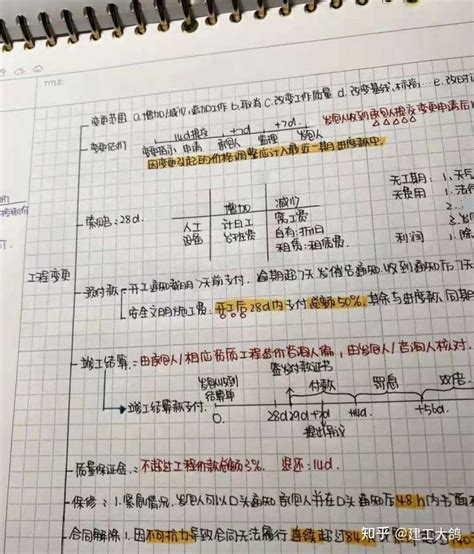 TITLE
变更范围 a.增加/减少,追加工作 b.取消 c.改变工作质量 d.改变基线,标高… e.改
14d提交 +7d +7d 发包人收到承包人提交变更申请后
变更估价
变更指示 申请 承包人 监理 发包人
因变更引起的价格调整应计入最近一期进度款中.
索赔:28d.
增加 减少
人工 计日工 窝工费
设备 台班费 自有:折旧
租赁:租赁费.
无工期: 1、天气
无费用 1、
利润 1、
工程变更
预付款 开工通知载明7天前支付. 逾期超7天发催告通知,收到通知后7天
安全文明施工费:开工后28d内支付总额50%,其余与进度款同期
竣工结算:由承包人/相应资质工程造价咨询人编,由发包人/咨询人核对.
签发付款证书
发包收到结算单
付款 罚息 双倍
竣工结算款支付.
0. 28d 29d +7d +14d +56d
提出异议
质量保证金:不超过工程价款总额3%. 退还:14d.
保修:1.紧急情况,发包人可以口头通知承包人并在口头通知后48h内书面
合同解除 1.因不可抗力导致合同无法履行连续超过84
知乎 @建工大鸽